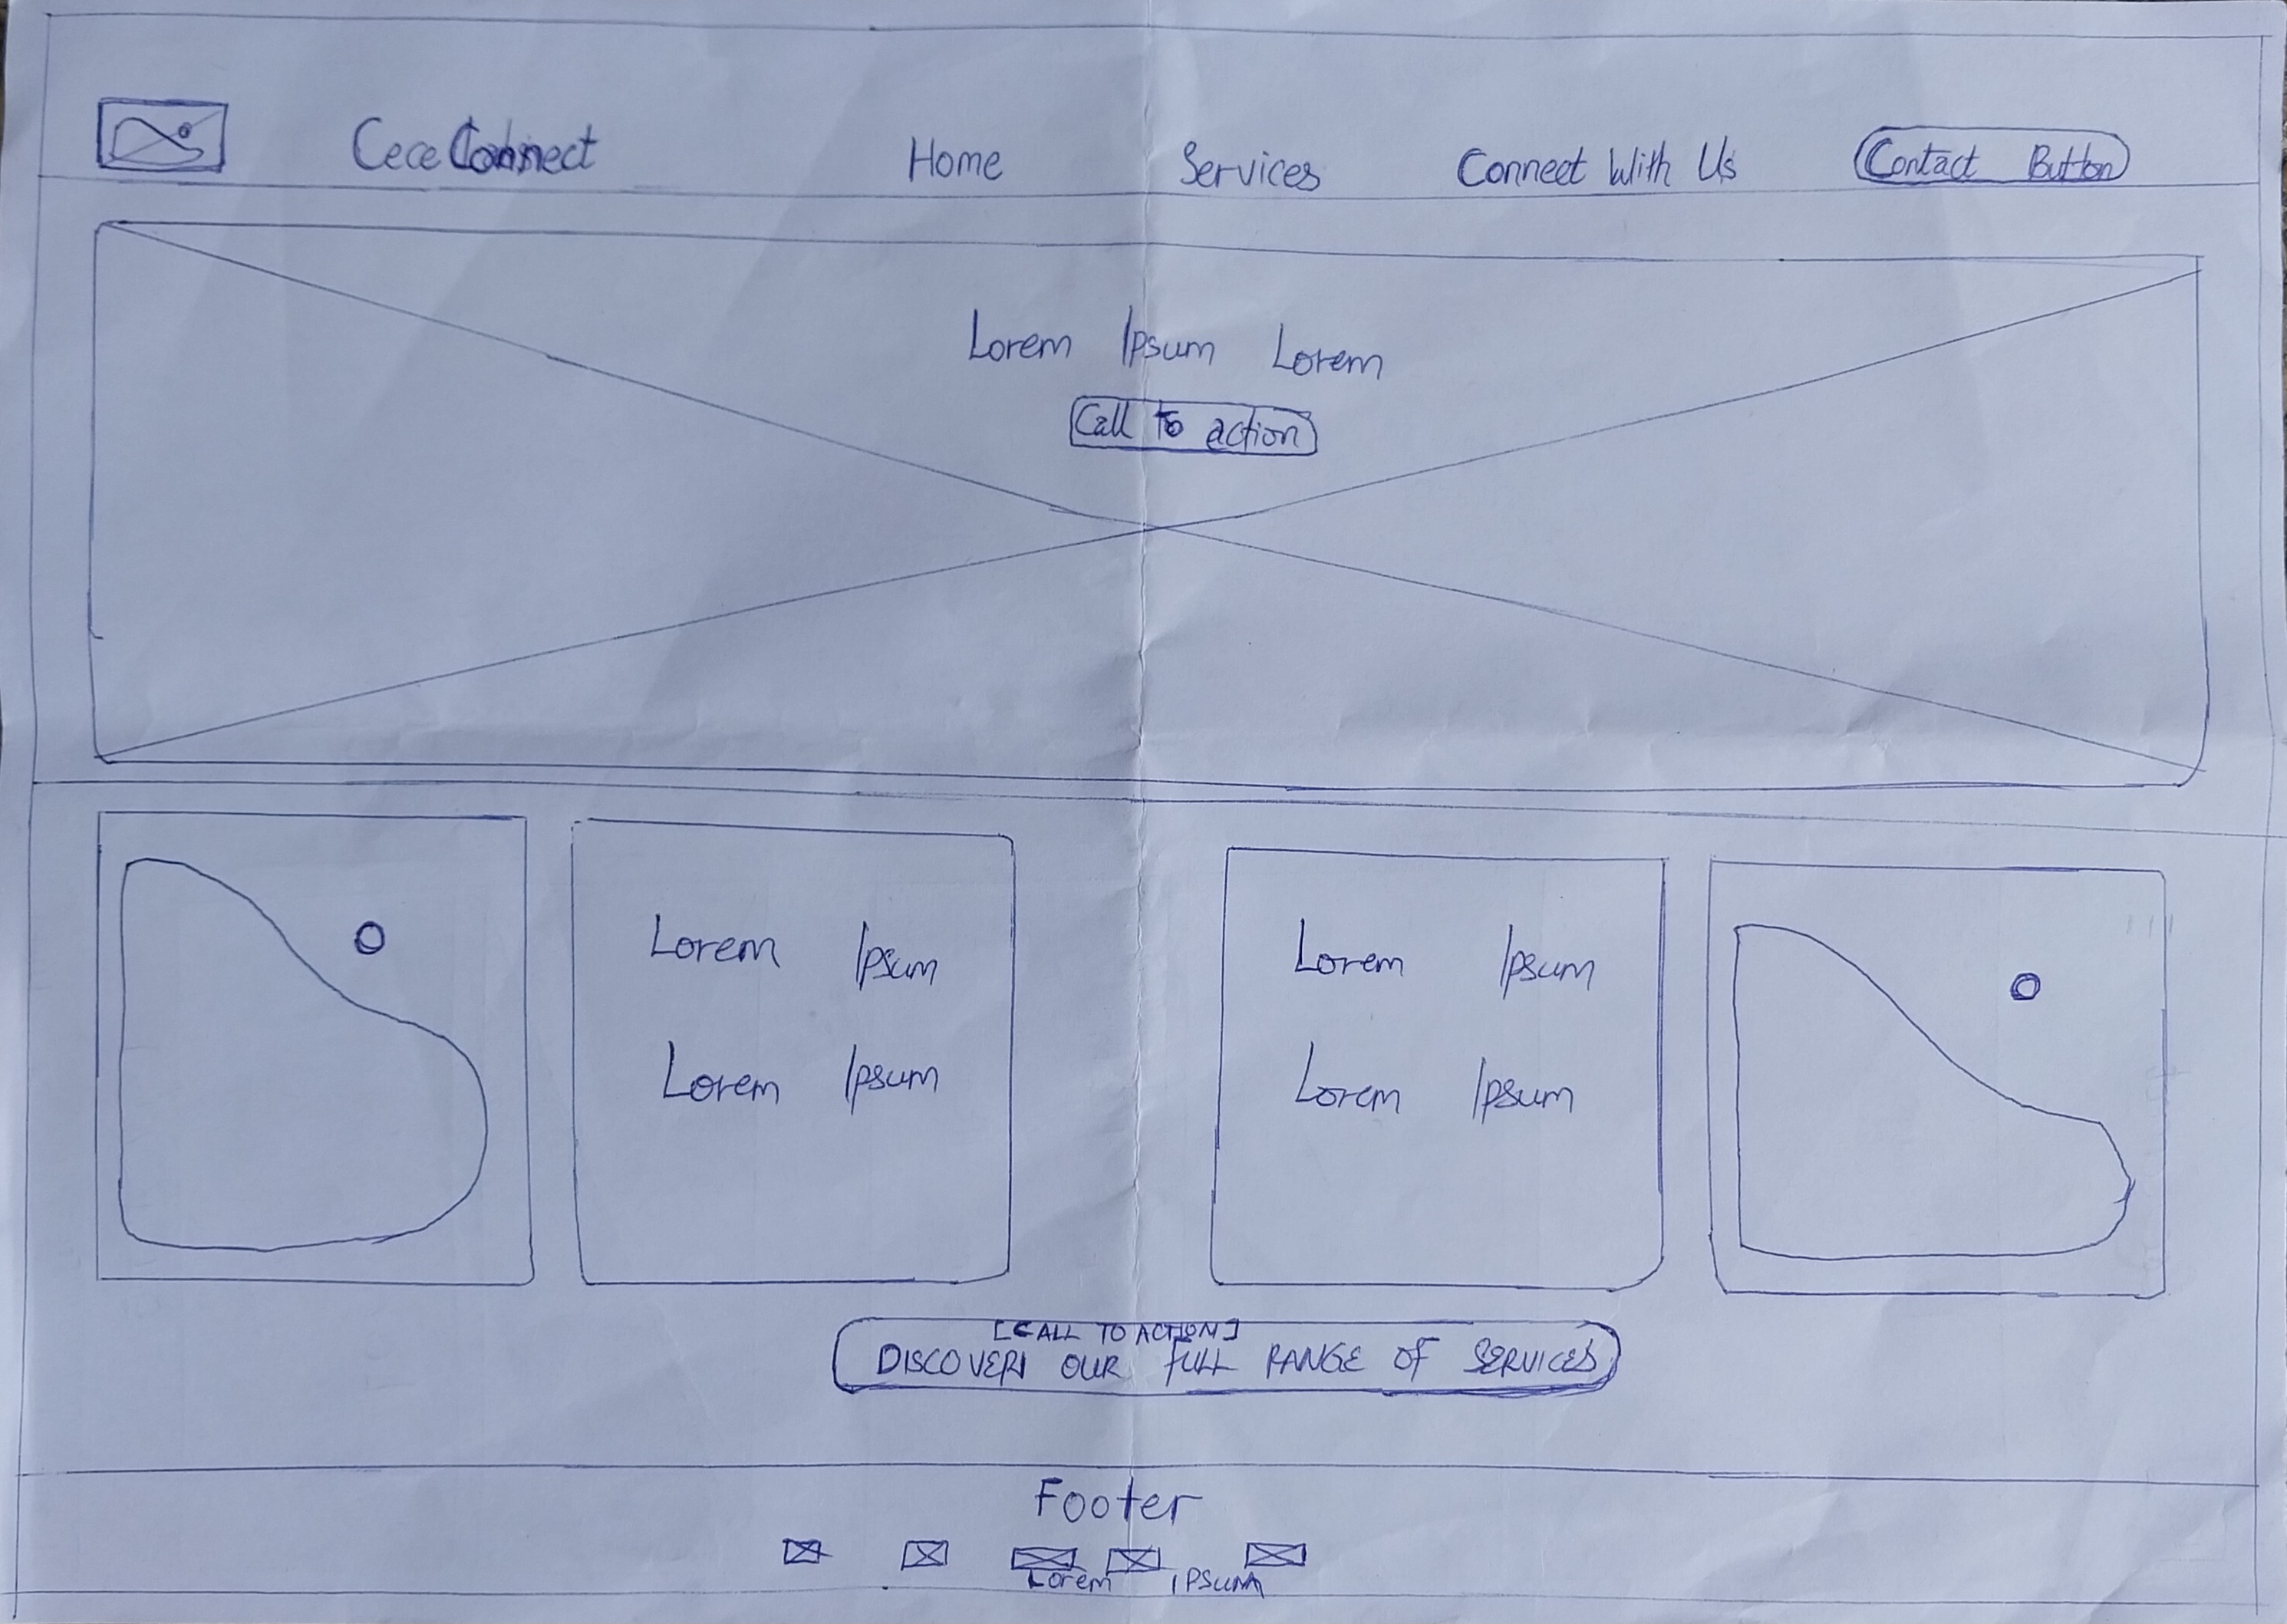 Cece Connect Home Services Connect With Us Contact Button
Lorem Ipsum Lorem
Call to action
Lorem Ipsum Lorem Ipsum
Lorem Ipsum Lorem Ipsum
[CALL TO ACTION]
DISCOVER OUR FULL RANGE OF SERVICES
Footer
Lorem IPSUM